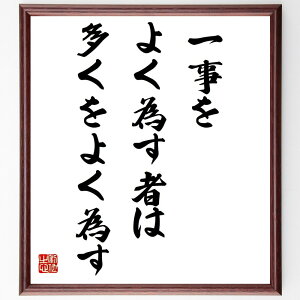 一事を
よく為す者は
多くをよく為す